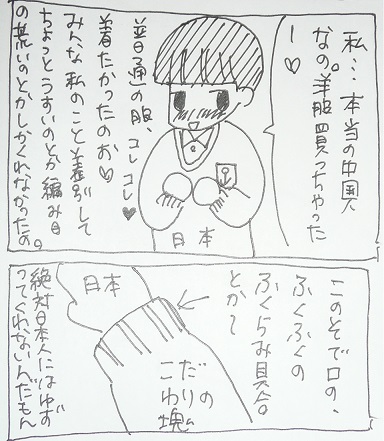 私…本当の中国人
なの。羊服買っちゃった
ー♡
普通の服、コレコレ♥
着たかったのお♡
みんな私のこと差別して
ちょっとうすいのとか編み目
の荒いのとかしかくれなかったの。
日本
このそで口の、
ふくふくの
ふくらみ具合
とか〜
日本
こだわりの塊
絶対日本人にはゆず
ってくれないんだもん